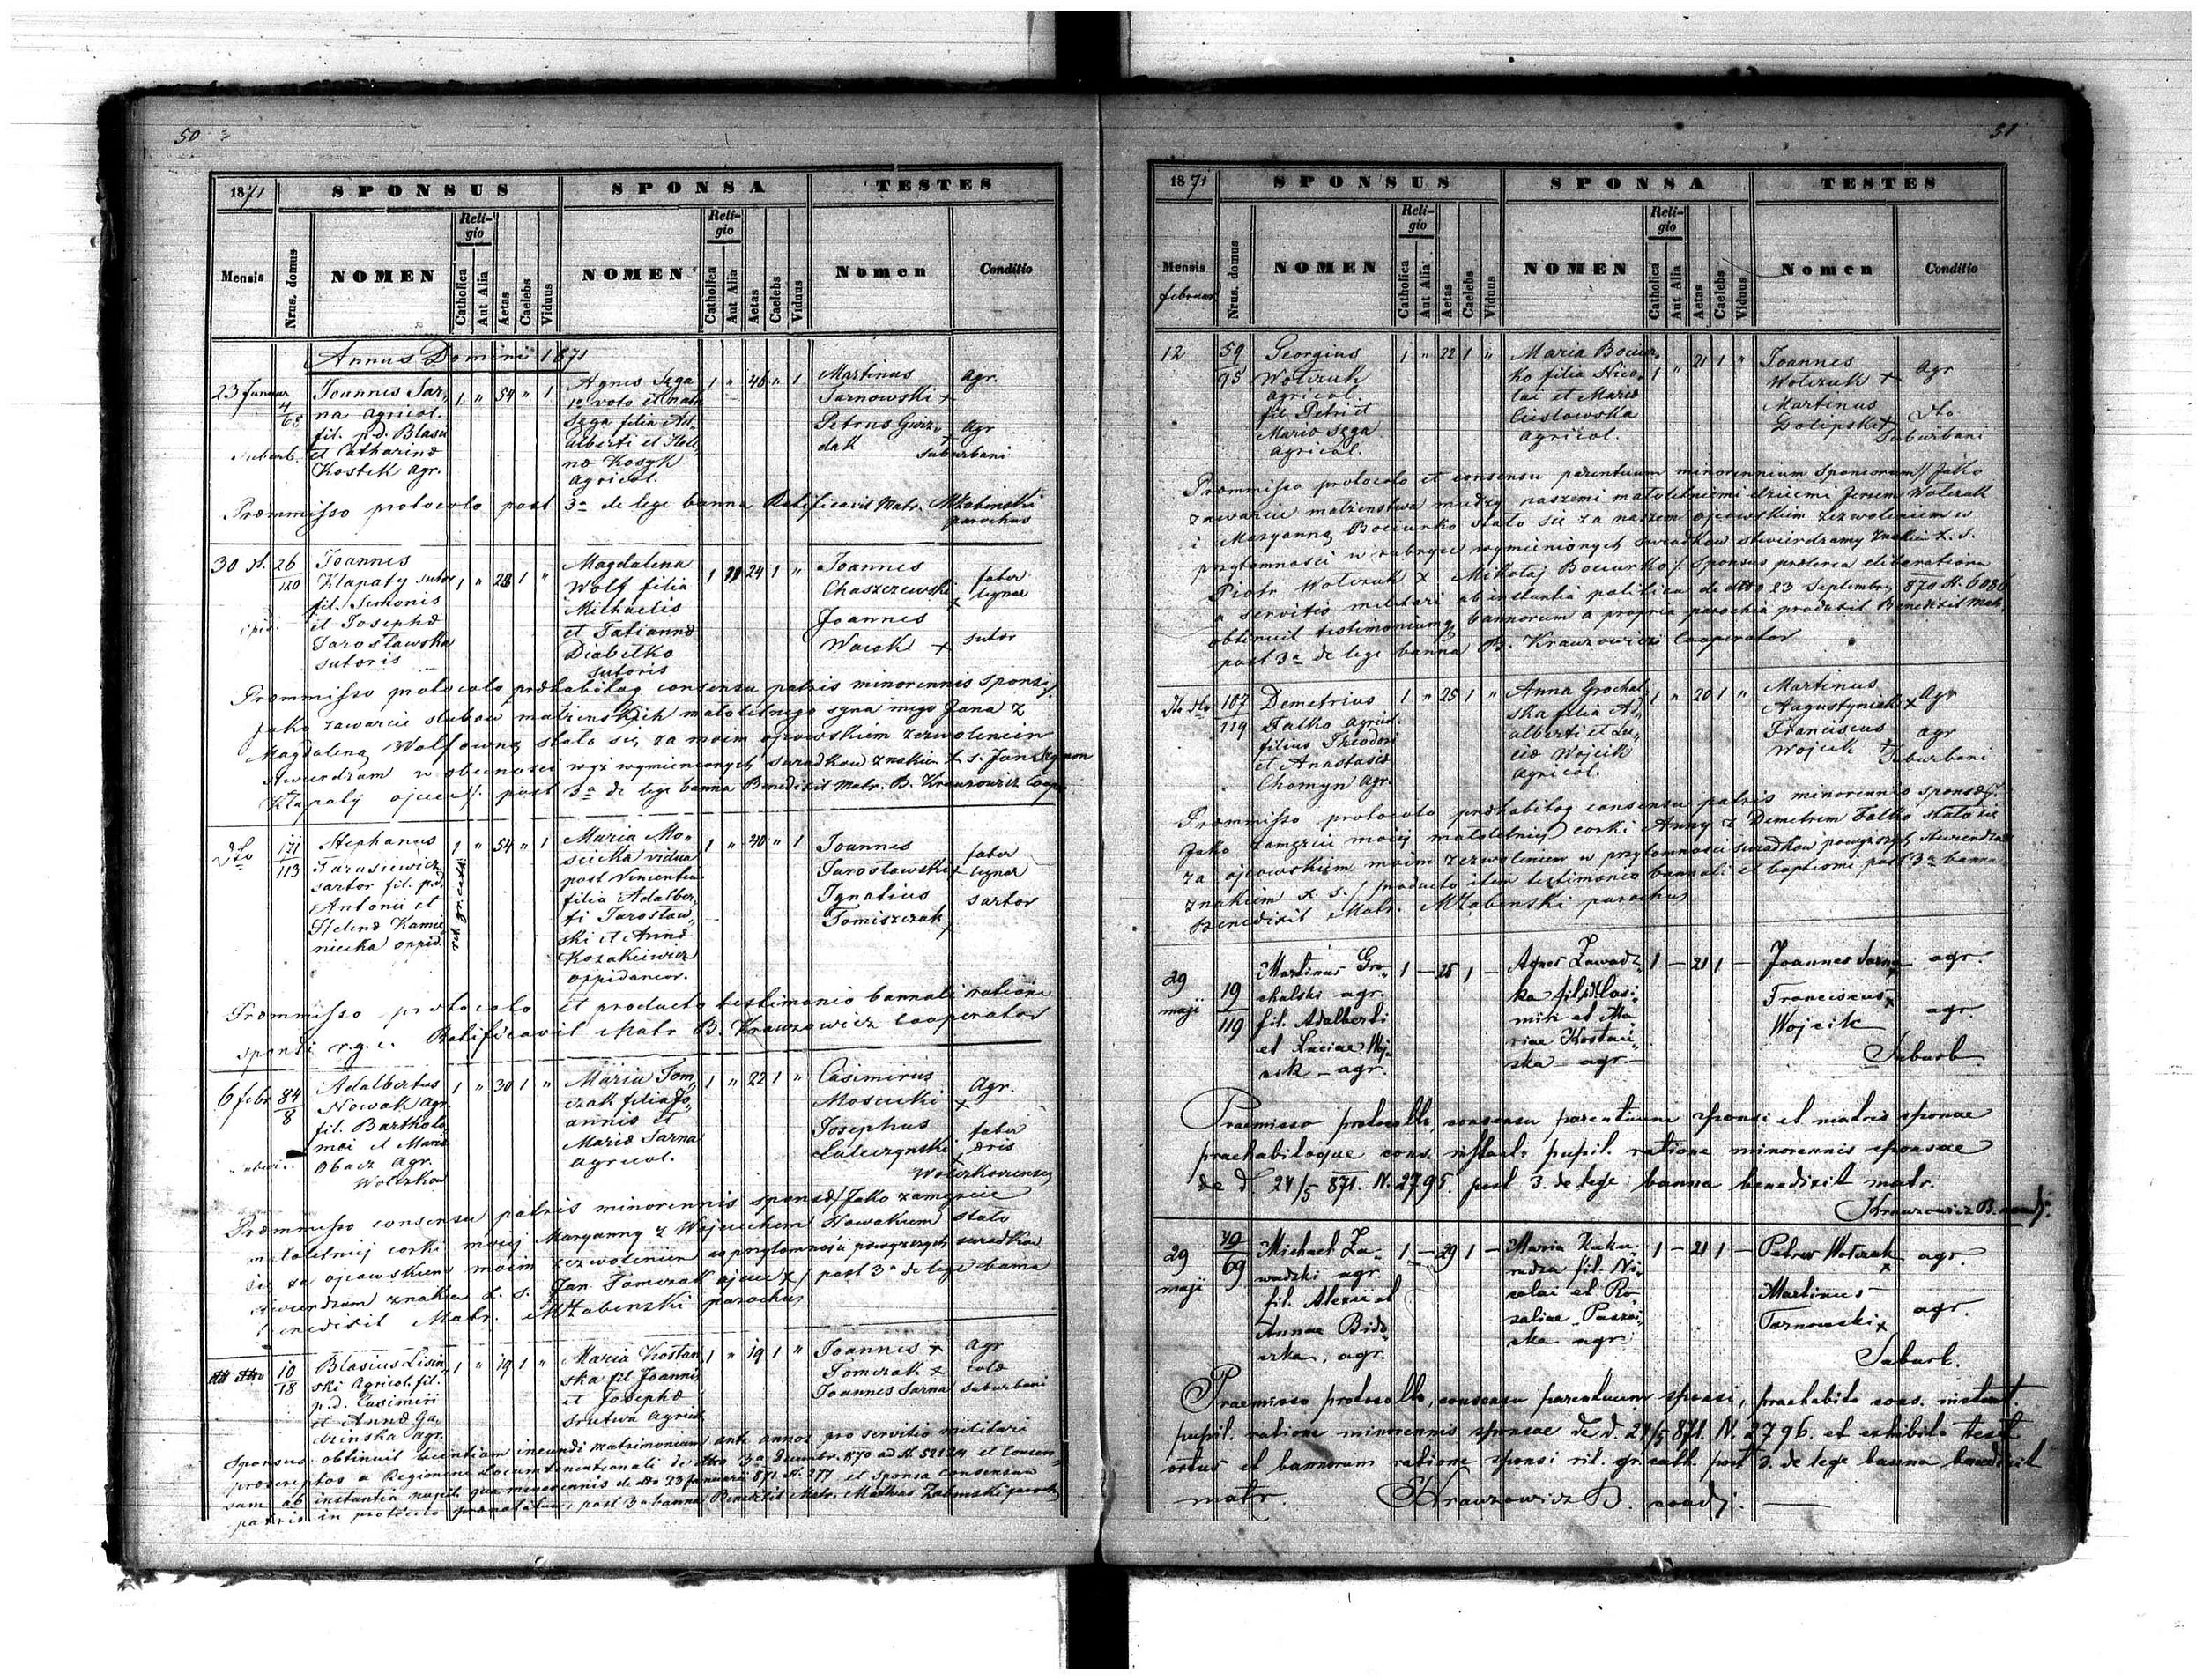 50
1871
SPONSUS
SPONSA
TESTES
Mensis
Nrus. domus
NOMEN
Religio
Catholica
Aut Alia
Aetas
Caelebs
Viduus
NOMEN
Religio
Catholica
Aut Alia
Aetas
Caelebs
Viduus
Nomen
Conditio
Annus Domini 1871
23 Januar
4
65
Suburb.
Joannes Sar„
na agricol.
fil. p.d. Blasii
et Catharinæ
Kostek agr.
1 „ 54 „ 1
Agnes Sęga
1º voto et nata
Sęga filia Ad„
alberti et Hele„
næ Kosyk
agricol.
1 „ 46 „ 1
Martinus
Tarnowski +
Petrus Gwiz„
dak +
agr.
agr
Suburbani
Præmmisso protocolo post 3a de lege banna Ratificavit Matr. MŻabinski
parochus
30 dt.
26
120
Joannes
Kłapaty sutor
fil. Simonis
et Josephæ
Jarosławska
sutoris
1 „ 28 1 „
Magdalena
Wolf filia
Michaelis
et Tatiannæ
Diabełko
sutoris
1 „ 24 1 „
Joannes
Chaszczewski
+
Joannes
Wacek +
faber
lignar
sutor
Præmmisso protocolo præhabitoq consensu patris minorennis sponsi /:
Jako zawarcie slubow małzenskich małoletnego syna mego Jana z
Magdaleną Wolfowną stało się za moim ojcowskiem zezwoleniem
stwierdzam w obecnosci wyż wymienionych swiadkow znakiem k. s. Jan Szymon
Kłapaty ojciec /. post 3a de lege banna Benedixit Matr. B. Krauzowicz Coop.
Dto
171
113
Stephanus
Tarasiewicz
sartor fil. p.d.
Antonii et
Helenæ Kamie„
niecka oppid.
1 „ 54 „ 1
rit. gr. cath.
Maria Mo„
scicka vidua
post Vincentium
filia Adalber„
ti Jarosław„
ski et Annæ
Kozakiewicz
oppidanor.
1 „ 40 „ 1
Joannes
Jarosławski +
Ignatius
Tomiszczak
faber
lignar
sartor
Præmmisso protocolo et producto testimonio bannali ratione
sponsi r.g.c. Ratificavit Matr B. Krauzowicz Cooperator
6 febr
84
8
Adalbertus
Nowak agr.
fil. Bartholo„
mei et Mariæ
Obacz agr.
Wolczkow
1 „ 30 1 „
Maria Tom„
czak filia Jo„
annis et
Mariæ Sarna
agricol.
1 „ 22 1 „
Casimirus
Moscicki +
Josephus
Luleczynski +
agr.
faber
æris
Wolczkoviensis
Præmmisso consensu patris minorennis sponsæ /: Jako zamęscie
małoletniej corki mojej Maryanny z Wojciechem Nowakiem stało
się za ojcowskiem moim zezwoleniem w przytomnosci powyzszych swiadkow
stwierdzam znakiem k. s. Jan Tomczak ojciec x / post 3a de lege banna
Benedixit Matr. MŻabinski parochus
dtto
10
18
Blasius Lisin„
ski Agricol. fil.
p.d. Casimiri
et Annæ Ga„
dzinska agr.
1 „ 19 1 „
Maria Kostan„
ska fil Joannis
et Josephæ
Srutwa agricol.
1 „ 19 1 „
Joannes +
Tomczak +
Joannes Sarna
Agr
colæ
Suburbani
Sponsus obtinuit licentiam ineundi matrimonium ante annos pro servitio militari
præscriptos a Regimine Locumtenentionali de dtto 3a Decembr. 870 ad N. 52124 et Consen„
sum ab instantia pupil. qua minorennis de dto 23 Januarii 871 N. 277 et sponsa consensum
patris in protocolo prænotatum, post 3a banna Benedixit Matr. Mathias Żabinski paroch
51
1871
SPONSUS
SPONSA
TESTES
Mensis
februar
Nrus. domus
NOMEN
Religio
Catholica
Aut Alia
Aetas
Caelebs
Viduus
NOMEN
Religio
Catholica
Aut Alia
Aetas
Caelebs
Viduus
Nomen
Conditio
12
59
95
Georgius
Wolczuk
agricol.
fil. Petri et
Mariæ Sęga
agricol.
1 „ 22 1 „
Maria Bociur„
ko filia Nico„
lai et Mariæ
Cieslowska
agricol.
1 „ 21 1 „
Joannes
Wolczuk +
Martinus
Dolipski +
Agr
Dto
Suburbani
Præmmisso protocolo et consensu parentuum minorennium sponsorum // Jako
zawarcie małzenstwa między naszemi małoletniemi dziecmi Jerzem Wolczuk
i Maryanną Bociurko stało się za naszem ojcowskiem zezwoleniem w
przytomności w rubryce wymienionych swiadkow stwierdzamy znakiem k. s.
Piotr Wolczuk x Mikołaj Bociurko /. Sponsus præterea liberationem
a servitio militari ab instantia politica de dtto 23 Septembris 870 N. 6086
obtinuit testimoniumq bannorum a propria parochia produxit Benedixit Matr.
post 3a de lege banna B. Krauzowicz Cooperator
Dto
107
119
Demetrius
Falko agricol.
filius Theodori
et Anastasiæ
Chomyn agr.
1 „ 25 1 „
Anna Grochal„
ska filia Ad„
alberti et Lu„
ciæ Wojcik
agricol.
1 „ 20 1 „
Martinus
Augustyniak +
Franciscus
Wojcik +
Agr
agr
Suburbani
Præmmisso protocolo præhabitoq consensu patris minorennis sponsæ /:
Jako zamęzcie mojej małoletniej corki Anny z Demetrem Falko stało się
za ojcowskiem moim zezwoleniem w przytomnosci swiadkow powyzszych stwierdzam
znakiem k. s. / producto item testimonio bannali et baptismi post 3a banna
Benedixit Matr. MŻabinski parochus
29
maji
19
119
Martinus Gro„
chalski agr.
fil. Adalberti
et Luciae Woj„
cik – agr.
1 – 25 1 –
Agnes Zawadz„
ka fil pd Casi„
miri et Ma„
riae Kostań„
ska – agr.
1 – 21 1 –
Joannes Sarna
Franciscus x
Wojcik
agr.
agr.
Suburb.
Praemisso protocollo, consensu parentuum sponsi et matris sponsae
praehabitoque cons. instant. pupil. ratione minorennis sponsae
de d. 24/5 871. N. 2795. post 3. de lege banna benedixit matr.
Krauzowicz B. coadj.
29
maji
49
69
Michael Za„
wadzki agr.
fil. Alexii et
Annae Bido„
czka, agr.
1 – 29 1 –
Maria Kuku„
rudza fil. Ni„
colai et Ro„
saliae
agr.
1 – 21 1 –
Petrus Wolczuk
x
Martinus
Tarnowski x
agr.
agr.
Suburb.
Praemisso protocollo, consensu parentuum sponsi, praehabito cons. instant.
pupil. ratione minorennis sponsae de d. 24/5 871. N. 2796. et exhibito test.
ortus et bannorum ratione sponsi rit. gr. cath. post 3. de lege banna benedixit
matr. Krauzowicz B. coadj.